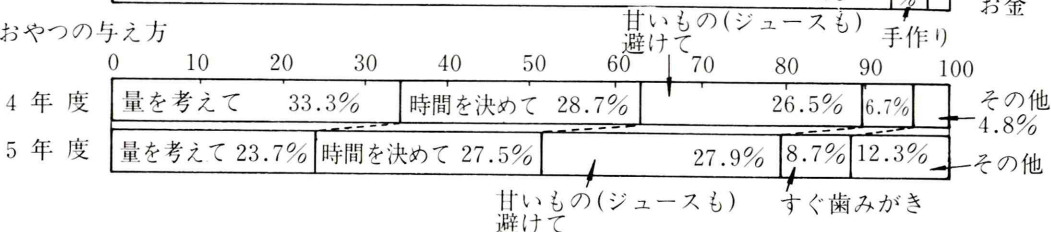 % お金
手作り
おやつの与え方
甘いもの(ジュースも)
避けて
0 10 20 30 40 50 60 70 80 90 100
4年度 量を考えて 33.3% 時間を決めて 28.7% 26.5% 6.7% その他
4.8%
5年度 量を考えて 23.7% 時間を決めて 27.5% 27.9% 8.7% 12.3% その他
甘いもの(ジュースも)
避けて
すぐ歯みがき